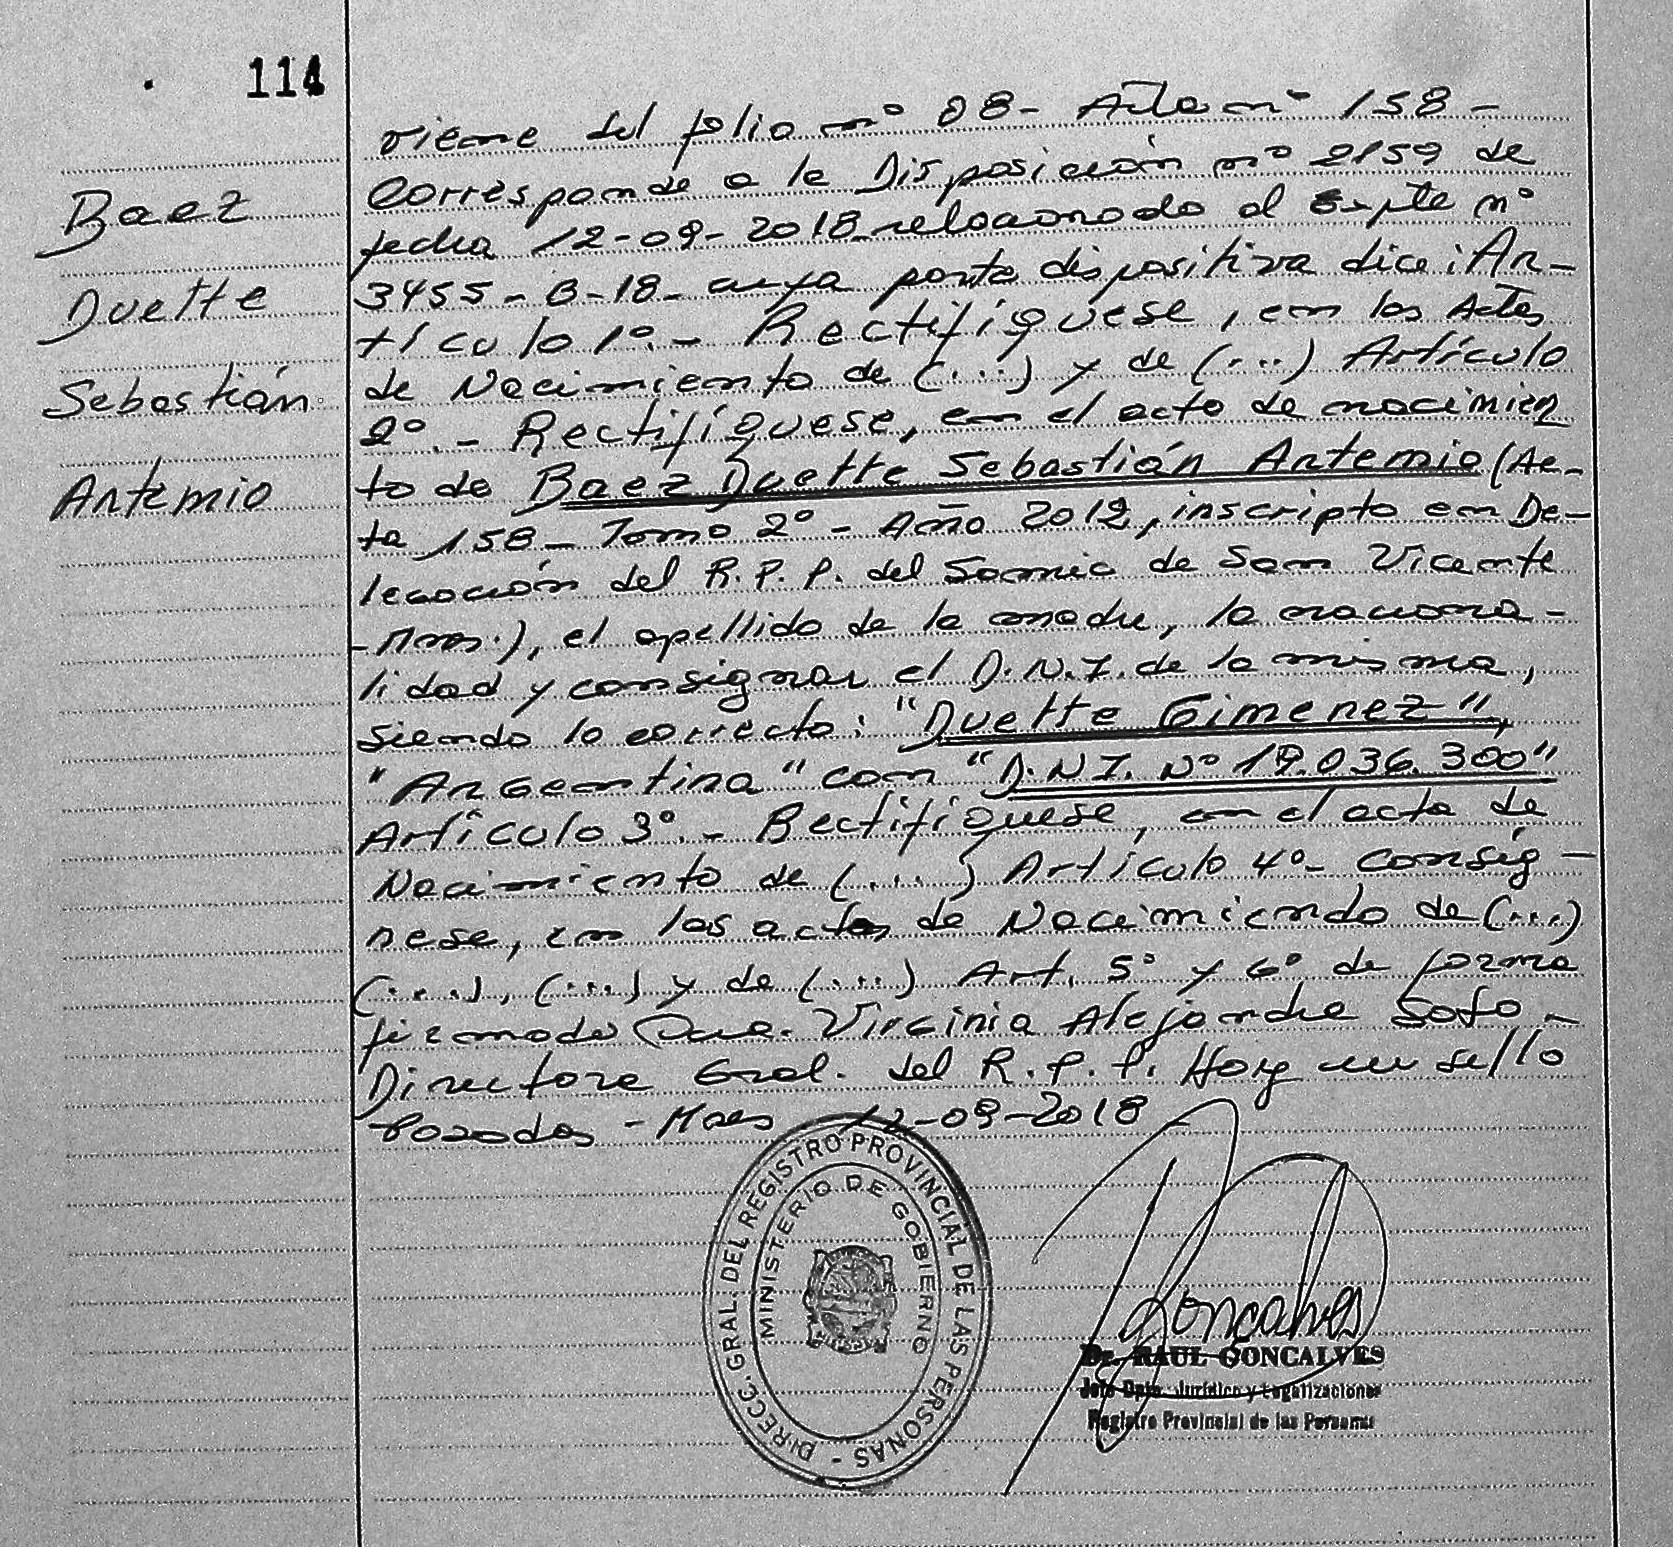 114
Baez
Duette
Sebastián
Artemio
viene del folio nº 08 - Acta nº 158 -
Corresponde a la Disposición nº 2159 de
fecha 12-09-2018 relacionado al Expte nº
3455-B-18- cuya parte dispositiva dice: Ar-
tículo 1º.- Rectifíquese, en las Actas
de Nacimiento de (...) y de (...) Artículo
2º.- Rectifíquese, en el acta de nacimien
to de Baez Duette Sebastián Artemio (Ac-
ta 158 - Tomo 2º - Año 2012, inscripto en De-
legación del R.P.P. del Samic de San Vicente
-Mnes.), el apellido de la madre, la naciona-
lidad y consignar el D.N.I. de la misma,
siendo lo correcto: "Duette Gimenez",
"Argentina" con "D.N.I. Nº 19.036.300"
Artículo 3º.- Rectifíquese, en el acta de
Nacimiento de (...) Artículo 4º- Consíg-
nese, en las actas de Nacimiendo de (...)
(...), (...) y de (...) Art. 5º y 6º de forma
firmado Dra. Virginia Alejandra Soto -
Directora Gral. del R.P.P. Hay un sello
Posadas - Mnes 12-09-2018
DIRECC. GRAL. DEL REGISTRO PROVINCIAL DE LAS PERSONAS -
MINISTERIO DE GOBIERNO
Goncalves
Dr. RAUL GONCALVES
Jefe Dpto. Jurídico y Legalizaciones
Registro Provincial de las Personas